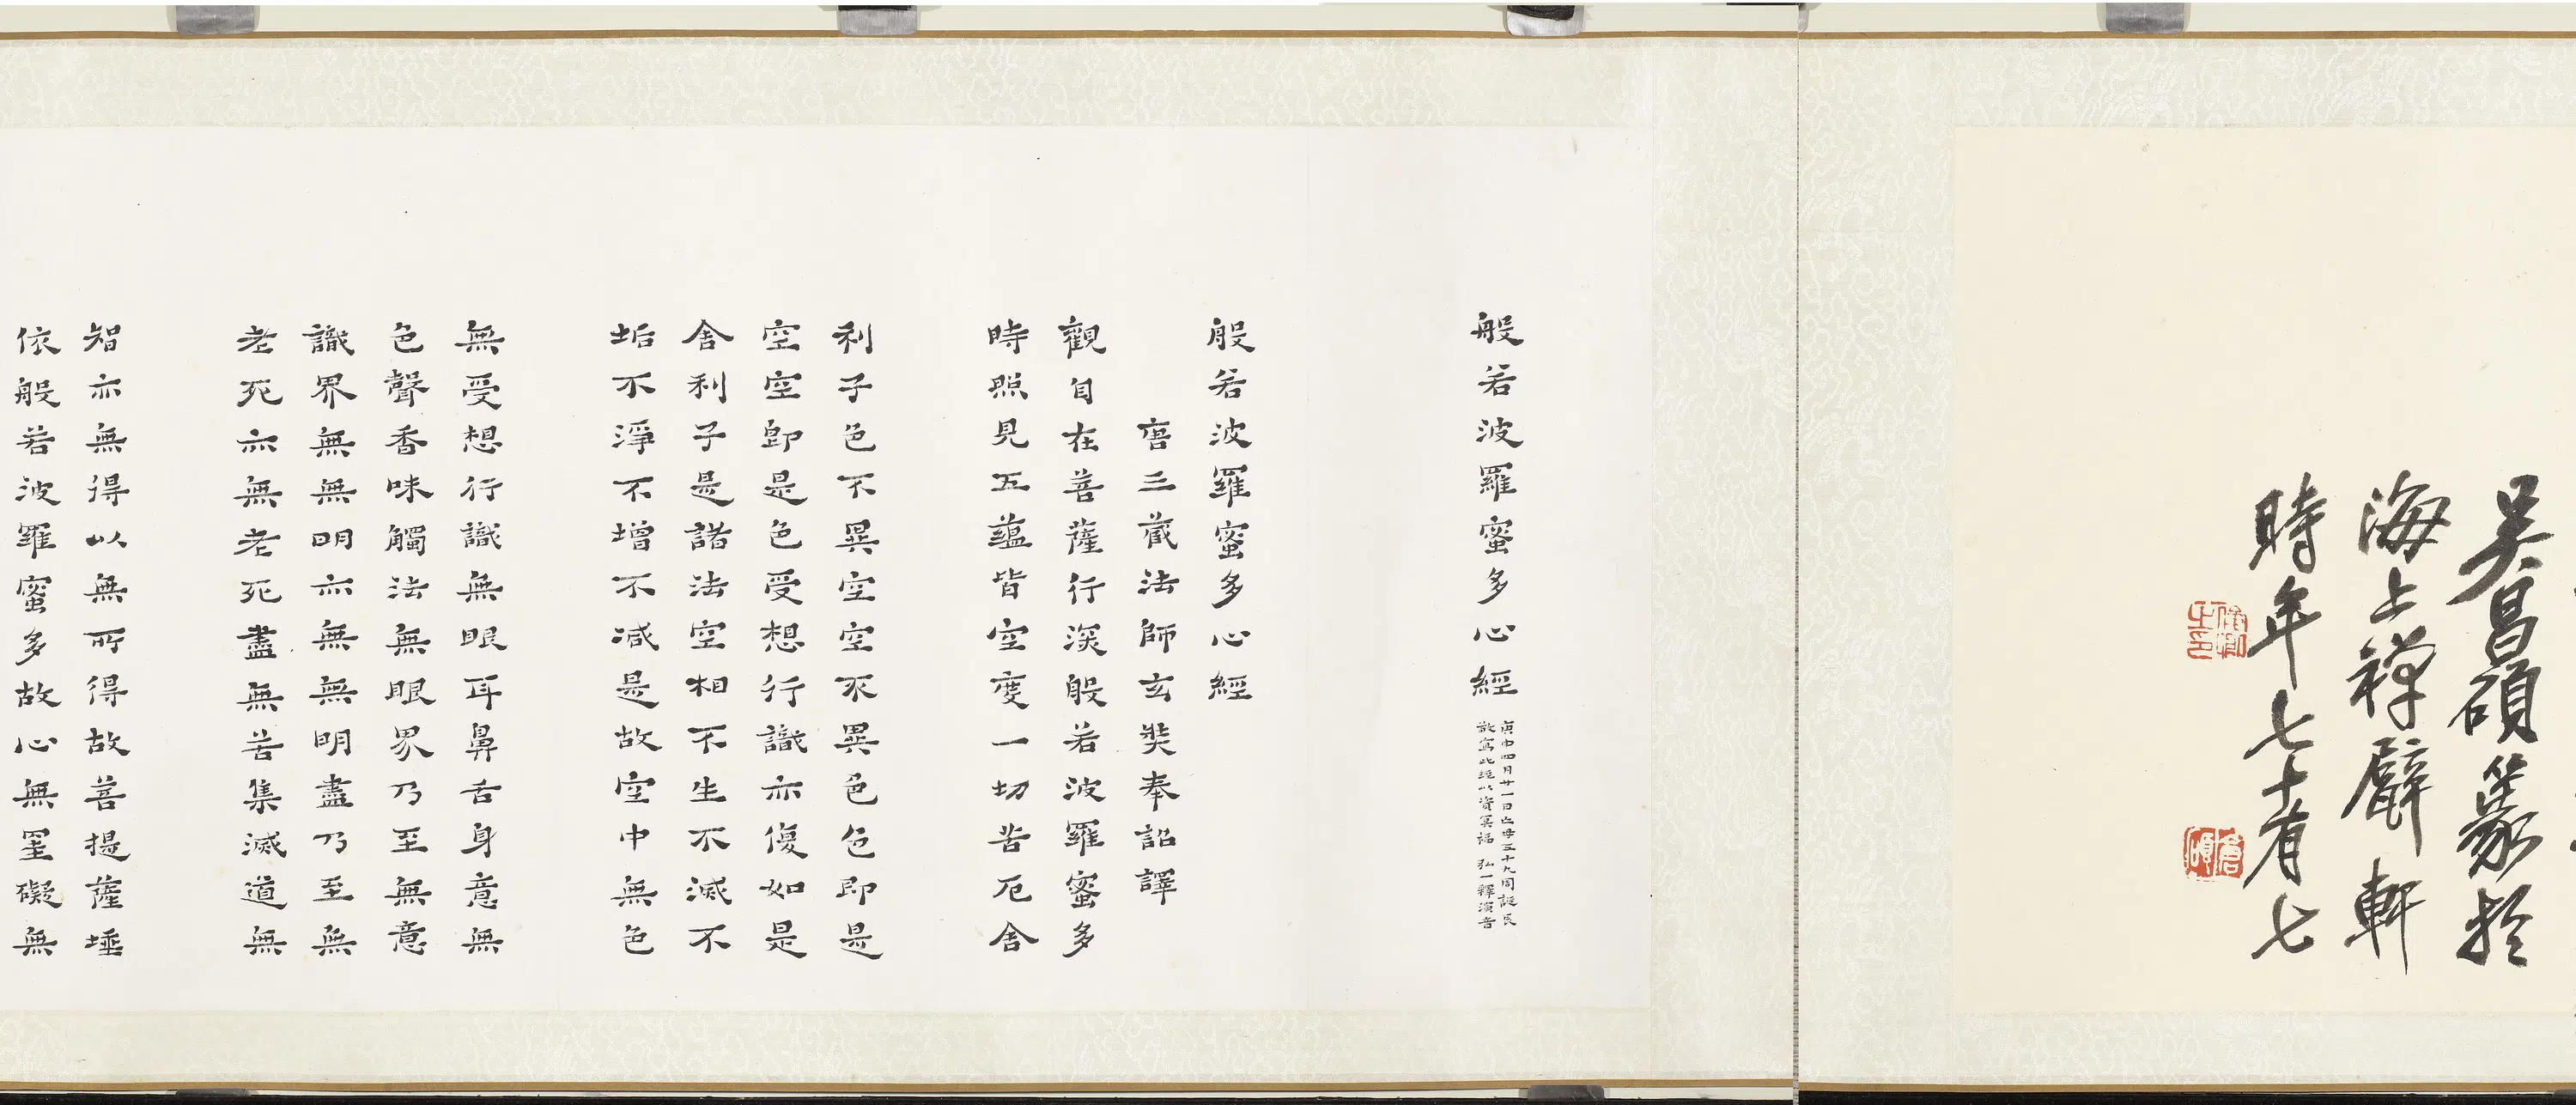 吳昌碩篆於
海上禪甓軒
時年七十有七
般若波羅蜜多心經
庚申四月廿一日亡母五十九周誕辰
敬寫此經以資冥福 弘一釋演音
般若波羅蜜多心經
唐三藏法師玄奘奉詔譯
觀自在菩薩行深般若波羅蜜多
時照見五蘊皆空度一切苦厄舍
利子色不異空空不異色色即是
空空即是色受想行識亦復如是
舍利子是諸法空相不生不滅不
垢不淨不增不減是故空中無色
無受想行識無眼耳鼻舌身意無
色聲香味觸法無眼界乃至無意
識界無無明亦無無明盡乃至無
老死亦無老死盡無苦集滅道無
智亦無得以無所得故菩提薩埵
依般若波羅蜜多故心無罣礙無